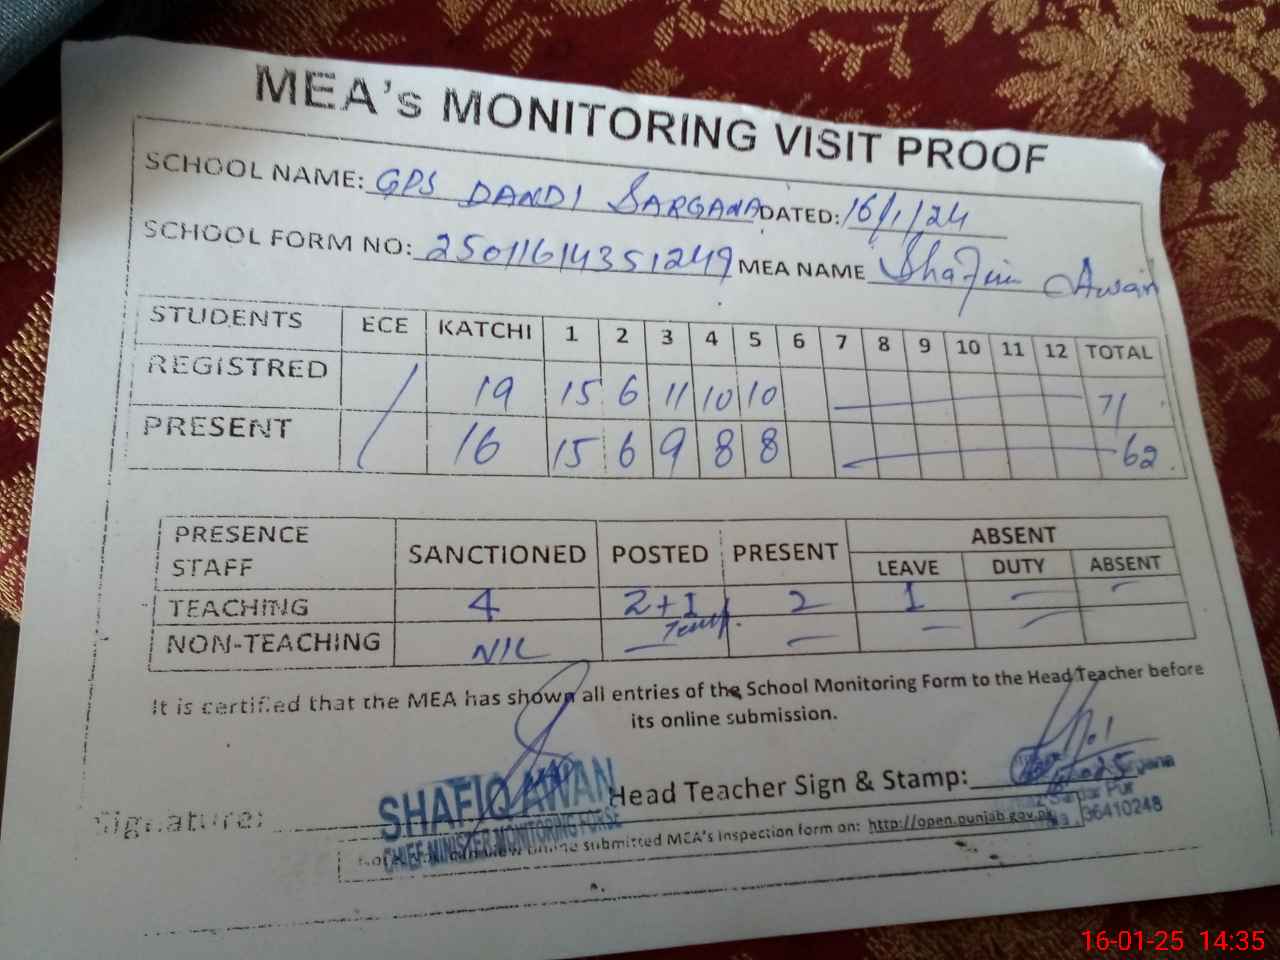 MEA's MONITORING VISIT PROOF
SCHOOL NAME: GPS DANDI SARGANA DATED: 16/1/24
SCHOOL FORM NO: 25011614351249 MEA NAME Shafiq Awan
STUDENTS ECE KATCHI 1 2 3 4 5 6 7 8 9 10 11 12 TOTAL
REGISTRED 19 15 6 11 10 10 71
PRESENT 16 15 6 9 8 8 62
PRESENCE STAFF SANCTIONED POSTED PRESENT ABSENT
LEAVE DUTY ABSENT
TEACHING 4 2+1 2 1 — —
Temp.
NON-TEACHING NIL — — — —
It is certified that the MEA has shown all entries of the School Monitoring Form to the Head Teacher before
its online submission.
Signature: SHAFIQ AWAN Head Teacher Sign & Stamp:
CHIEF MINISTER MONITORING FORSE
submitted MEA's Inspection form on: http://open.punjab.gov.pk
36410248
16-01-25 14:35